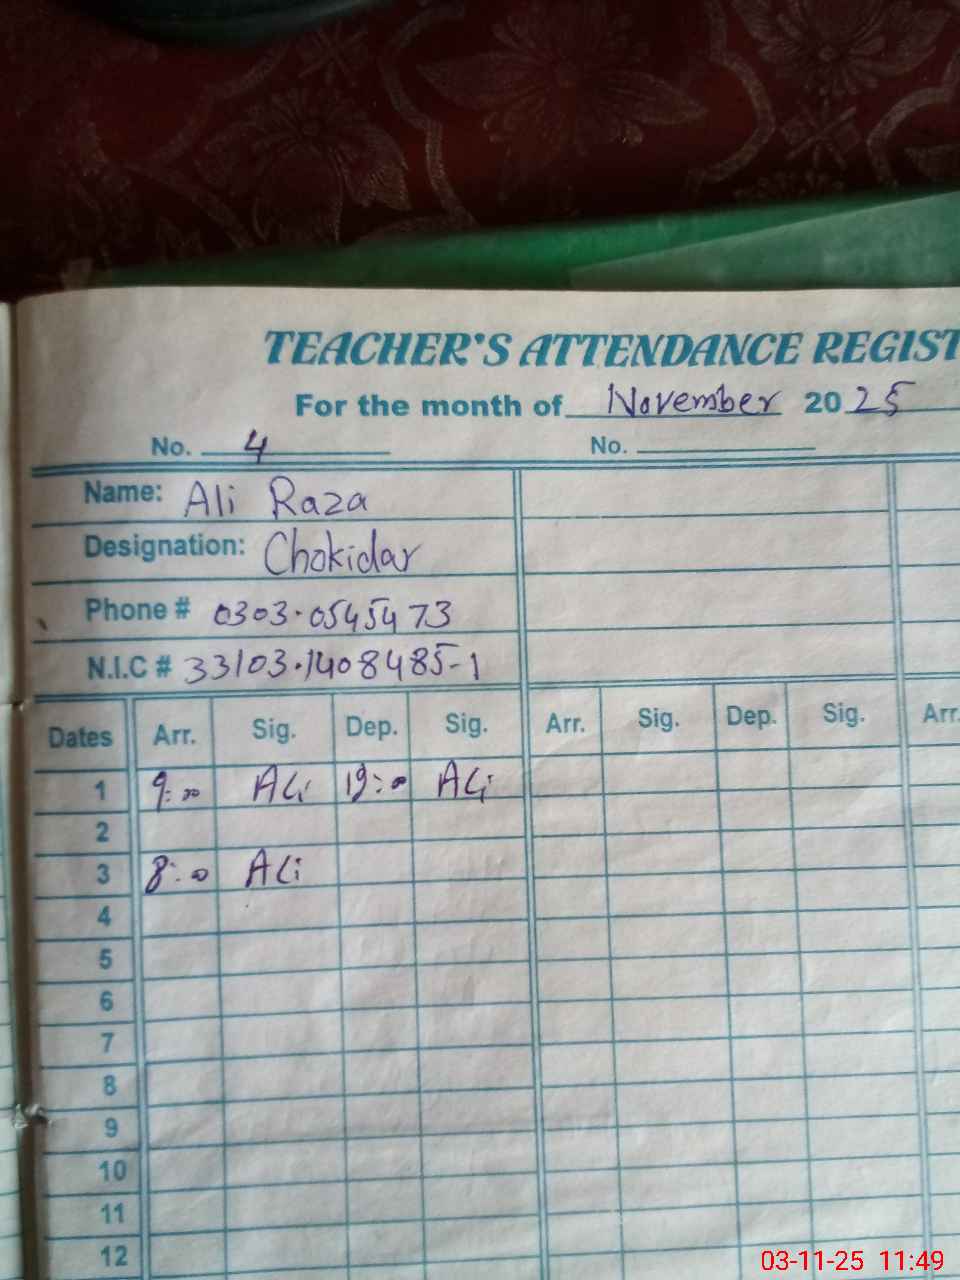 TEACHER'S ATTENDANCE REGIST
For the month of November 2025
No. 4 No.
Name: Ali Raza
Designation: Chokidar
Phone # 0303.0545473
N.I.C # 33103.1408485-1
Dates Arr. Sig. Dep. Sig. Arr. Sig. Dep. Sig. Arr.
1 9:00 Ali 19:00 Ali
2
3 8:00 Ali
4
5
6
7
8
9
10
11
12
03-11-25 11:49